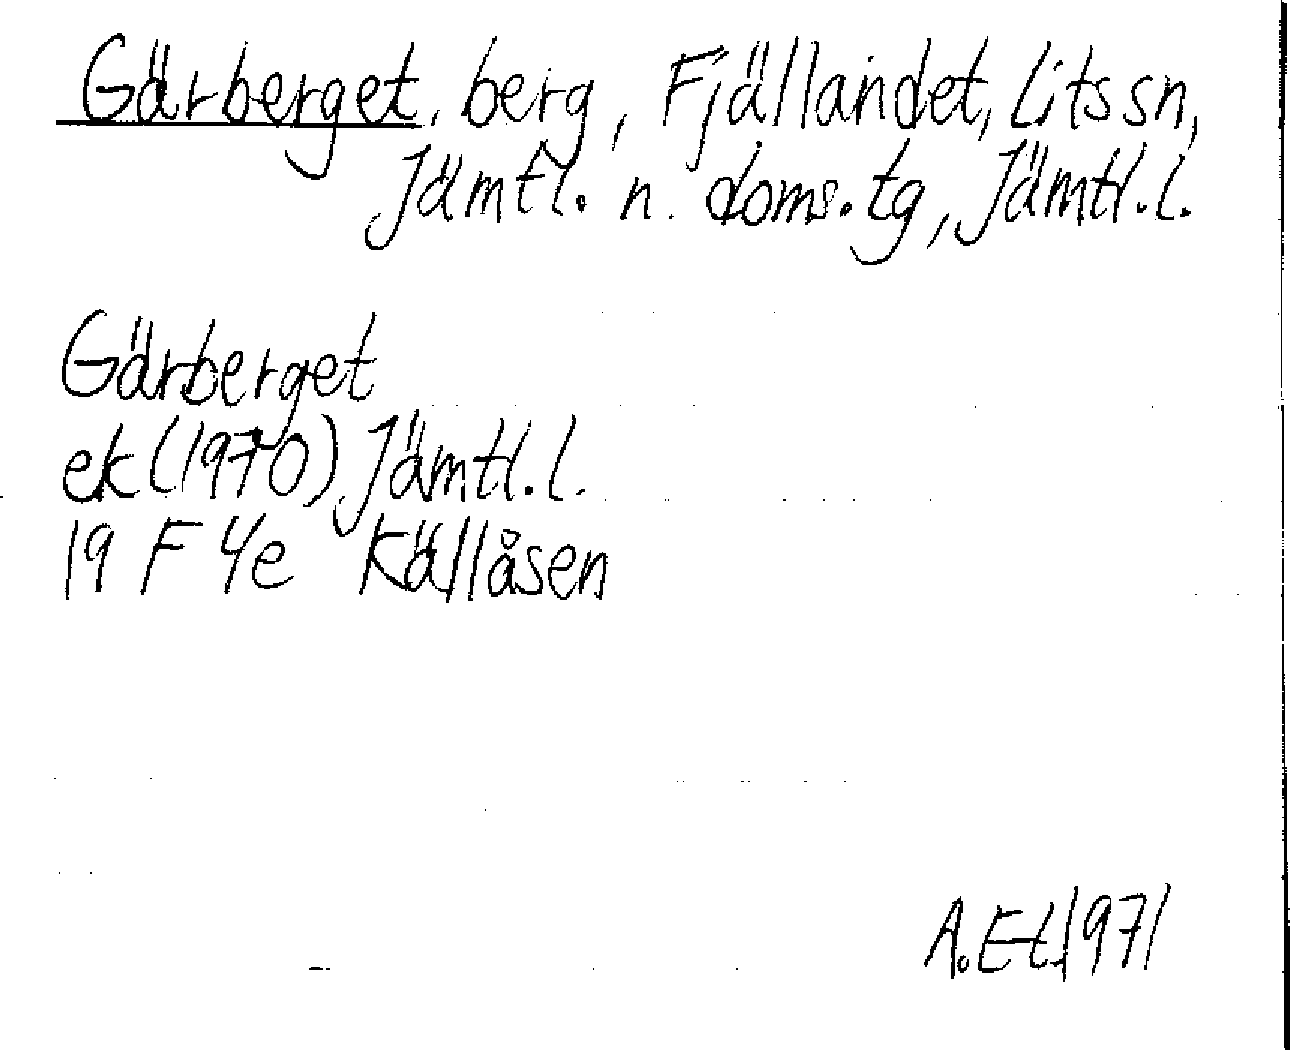 Gärberget, berg, Fjällandet, Lits sn,
Jämtl. n. doms. tg, Jämtl. l.
Gärberget
ek (1970) Jämtl. l.
19 F 4e Källåsen
A. Et. 1971